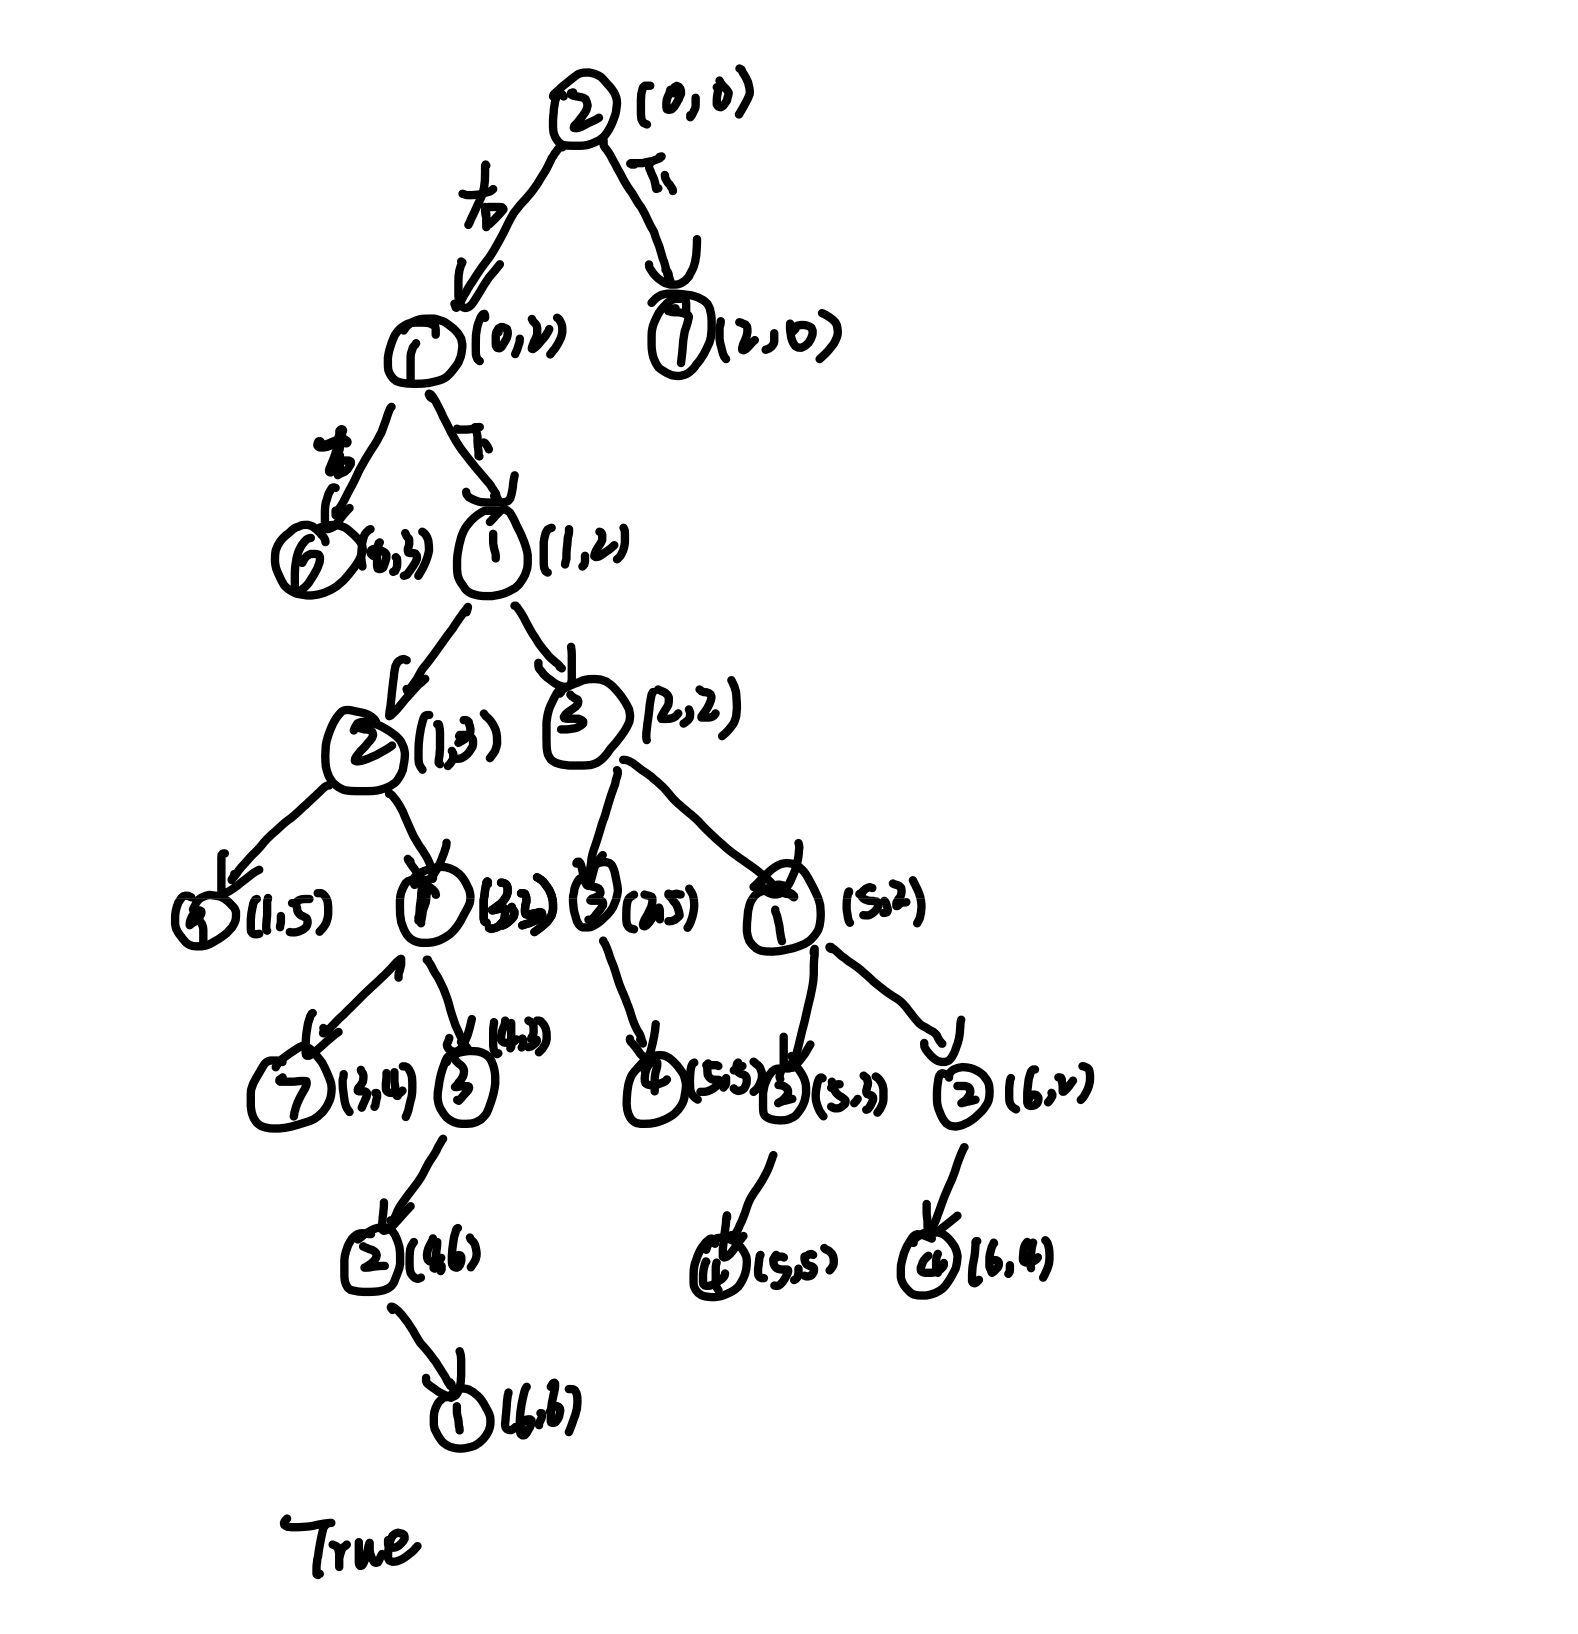 2 (0,0)
右 下
1 (0,2) 7 (2,0)
右 下
6 (0,3) 1 (1,2)
2 (1,3) 3 (2,2)
(1,5) 1 3 (2,5) 1 (5,2)
7 (3,4) 3 (4,3) 4 (5,5) 2 (5,3) 2 (6,2)
2 (4,6) 4 (5,5) 4 (6,4)
1 (6,6)
True